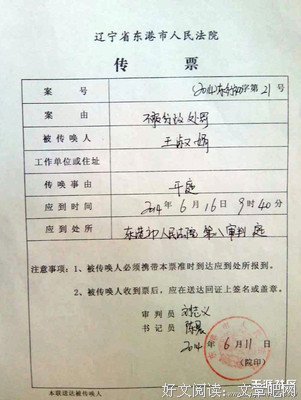 辽宁省东港市人民法院
传票
案号 2014东行初字第21号
案由 不服行政处罚
被传唤人 王淑娟
工作单位或住址
传唤事由 开庭
应到时间 2014年6月16日9时40分
应到处所 东港市人民法院第八审判庭
注意事项：1、被传唤人必须携带本票准时到达应到处所报到。
2、被传唤人收到票后，应在送达回证上签名或盖章。
审判员
书记员
2014年6月11日
（院印）
本联送达被传唤人
好文阅读：文章吧网